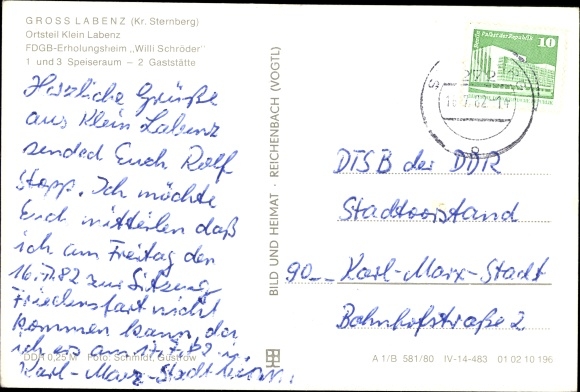 GROSS LABENZ (Kr. Sternberg)
Ortsteil Klein Labenz
FDGB-Erholungsheim „Willi Schröder"
1 und 3 Speiseraum – 2 Gaststätte
Herzliche Grüße
aus Klein Labenz
sended Euch Rolf
Stopp. Ich möchte
Euch mitteilen daß
ich am Freitag den
16.7.82 zur Sitzung
Friedensfart nicht
kommen kann, da
ich erst am 17.7.82 in
Karl-Marx-Stadt bin.
DDR 0,25 M Foto: Schmidt, Güstrow
BILD UND HEIMAT · REICHENBACH (VOGTL)
Berlin Palast der Republik
10
DDR
DTSB der DDR
Stadtvorstand
90__ Karl-Marx-Stadt
Bahnhofstraße 2
A 1/B 581/80 IV-14-483 01 02 10 196